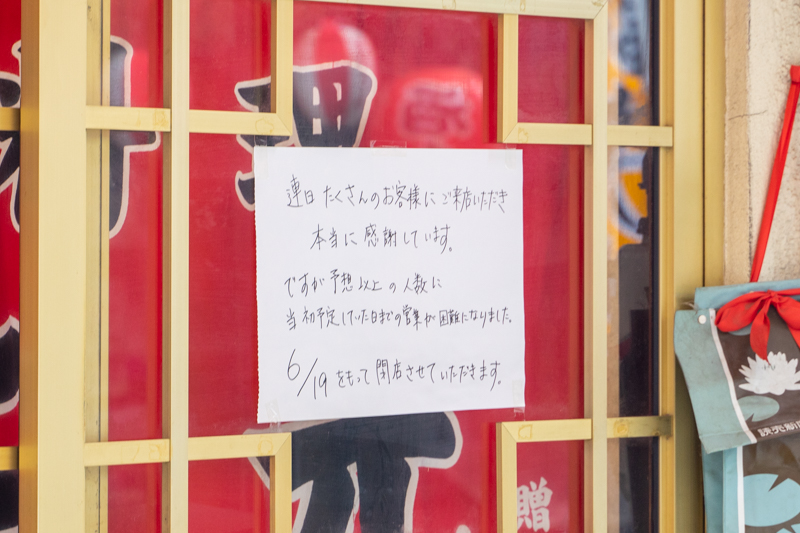 連日 たくさんのお客様に ご来店いただき
本当に 感謝しています。
ですが 予想以上の人数に
当初予定していた日までの営業が 困難になりました。
6/19 をもって 閉店させていただきます。
贈
読売新聞